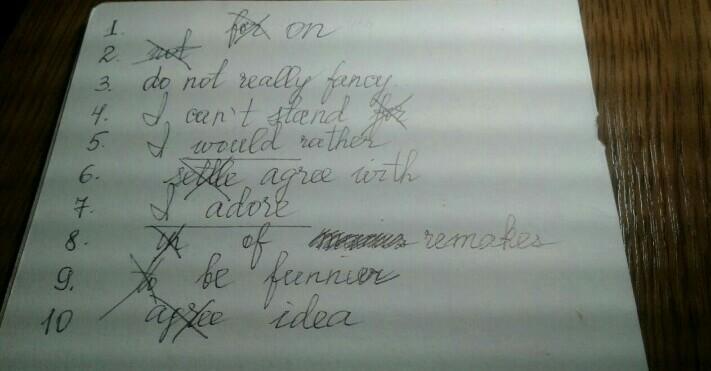 1. for on
2. not
3. do not really fancy
4. I can't stand for
5. I would rather
6. settle agree with
7. I adore
8. in of remakes
9. to be funnier
10 agree idea